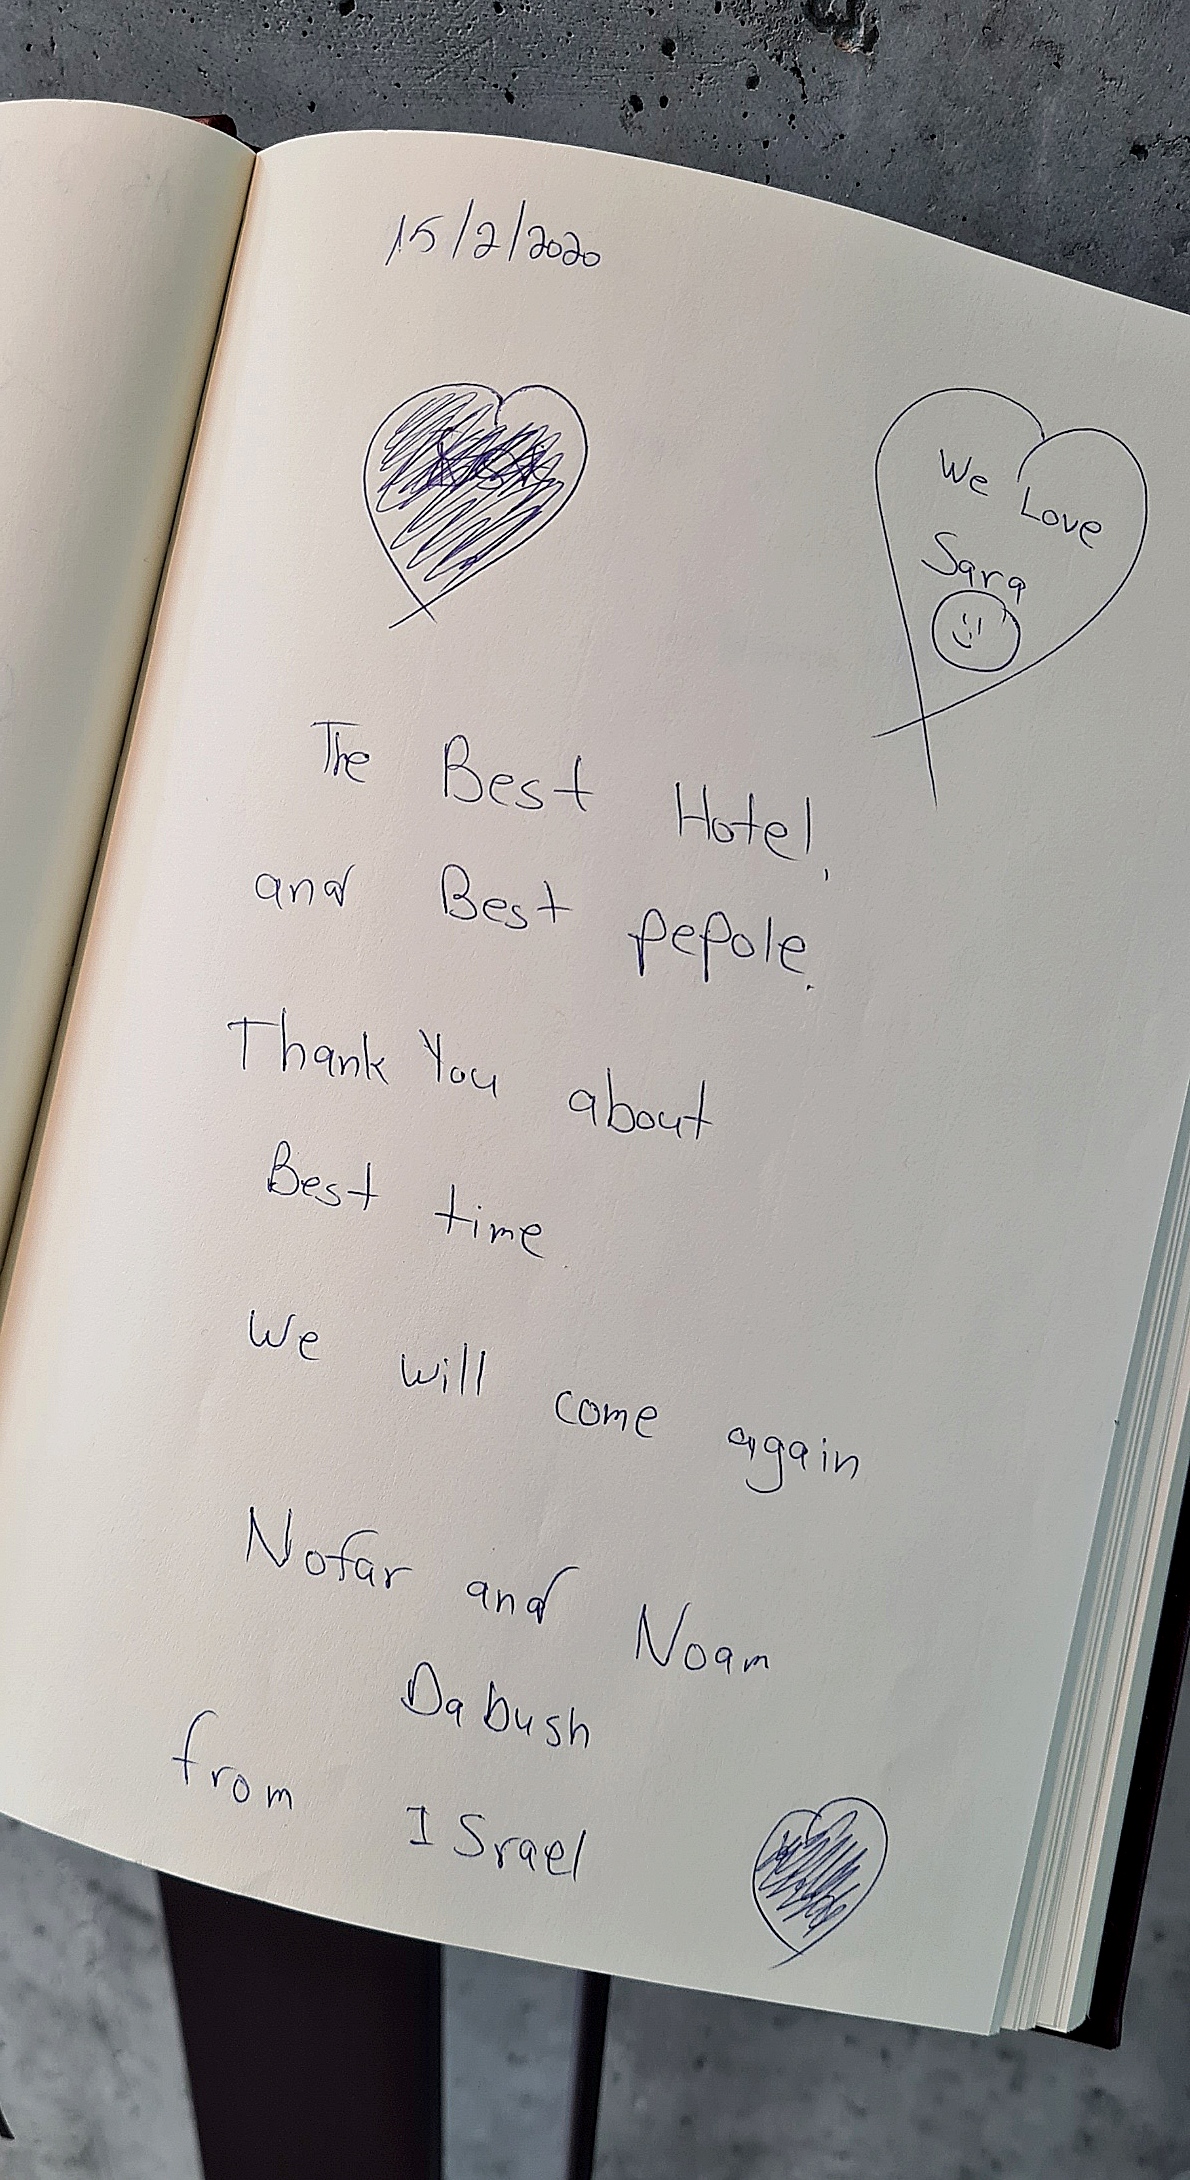 15/2/2020
We Love
Sara
The Best Hotel,
and Best pepole.
Thank You about
Best time
We will come again
Nofar and Noam
Dabush
from ISrael